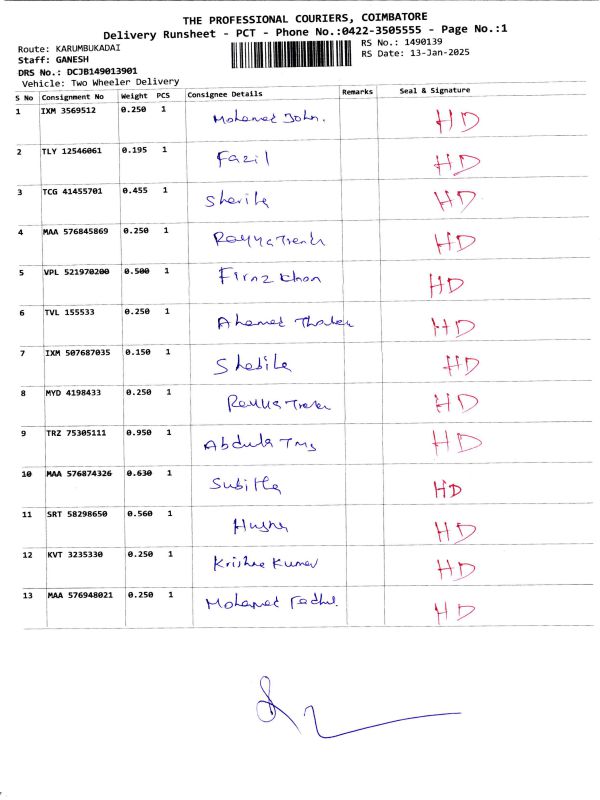 THE PROFESSIONAL COURIERS, COIMBATORE
Delivery Runsheet - PCT - Phone No.:0422-3505555 - Page No.:1
Route: KARUMBUKADAI
RS No.: 1490139
Staff: GANESH
RS Date: 13-Jan-2025
DRS No.: DCJB149013901
Vehicle: Two Wheeler Delivery
S No Consignment No Weight PCS Consignee Details Remarks Seal & Signature
1 IXM 3569512 0.250 1 Mohamed John. HD
2 TLY 12546061 0.195 1 Fazil HD
3 TCG 41455701 0.455 1 HD
4 MAA 576845869 0.250 1 HD
5 VPL 521970200 0.500 1 HD
6 TVL 155533 0.250 1 Ahamed HD
7 IXM 507687035 0.150 1 HD
8 MYD 4198433 0.250 1 HD
9 TRZ 75305111 0.950 1 HD
10 MAA 576874326 0.630 1 HD
11 SRT 58298650 0.560 1 HD
12 KVT 3235330 0.250 1 Kumar HD
13 MAA 576948021 0.250 1 Mohamed HD